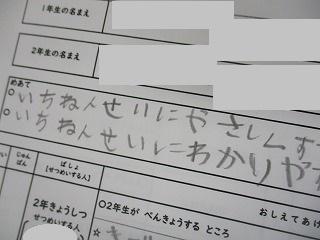 1年生の名まえ
2年生の名まえ
めあて
○いちねんせいにやさしくす
○いちねんせいにわかりやす
じゅんばん
ばしょ
【せつめいする人】
おしえてあげ
2年きょうしつ
せつめいする人
○2年生が べんきょうする ところ
☆